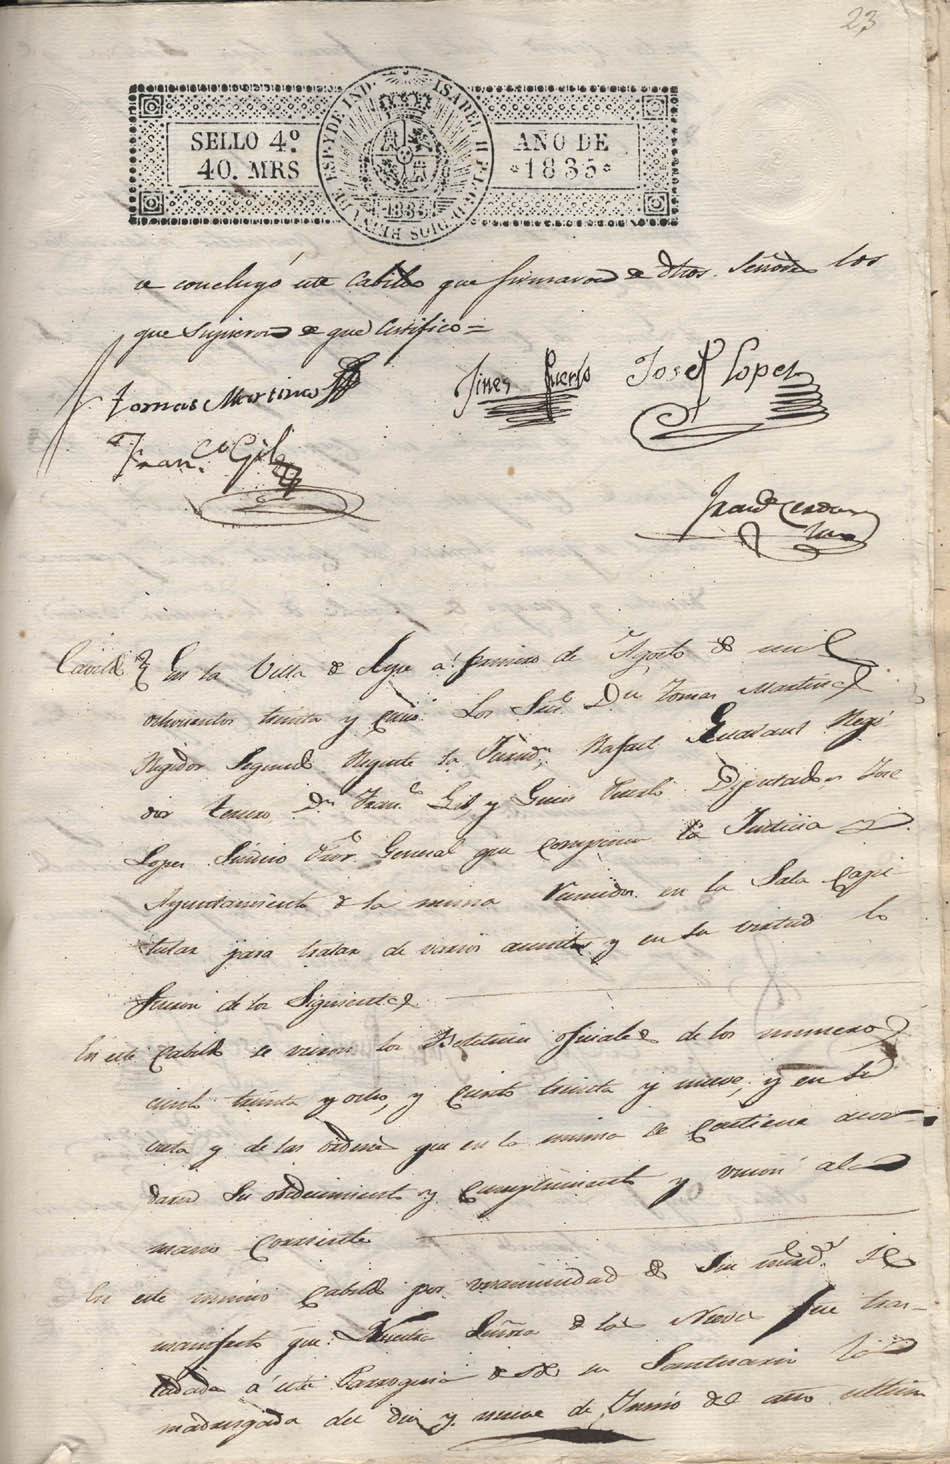 23
SELLO 4º
40. MRS
ISABEL II P.L.G. DE DIOS REINA DE ESP. Y DE IND.
1835
AÑO DE
*1835*
se concluyó este Cabildo que firmaron de dhos. Señores los
que supieron de que Certifico =
Tomas Martinez
Jines Cuerlo
Josef Lopez
Fran.co Gil
Cavildo En la Villa de Aspe a primero de Agosto de mil
ochocientos treinta y cinco: Los Sres. Dn. Tomas Martinez
Regidor Segundo Regente la Jurisdn., Rafael Regi
dor tercero, Dn. Fran.co Gil, y Gines Diputados, José
Lopez Sindico Pror. General que componen la Justicia y
Ayuntamiento de la misma Reunidos en la Sala Capi
tular para tratar de varios asuntos y en su virtud lo
hicieron de los Siguientes
En este Cabildo se vieron los Boletines oficiales de los numeros
ciento treinta y ocho, y ciento treinta y nueve, y en su
vista y de las ordenes que en la misma se contiene acor-
daron su obedecimiento y cumplimiento y unión a la
mano corriente
En este mismo Cabildo por unanimidad de Sus mrds. se
manifestó que Nuestra Señora de las Nieves fue tras-
ladada á esta Parroquia desde su Santuario la
madrugada del dia y nueve de Junio del año ultimo